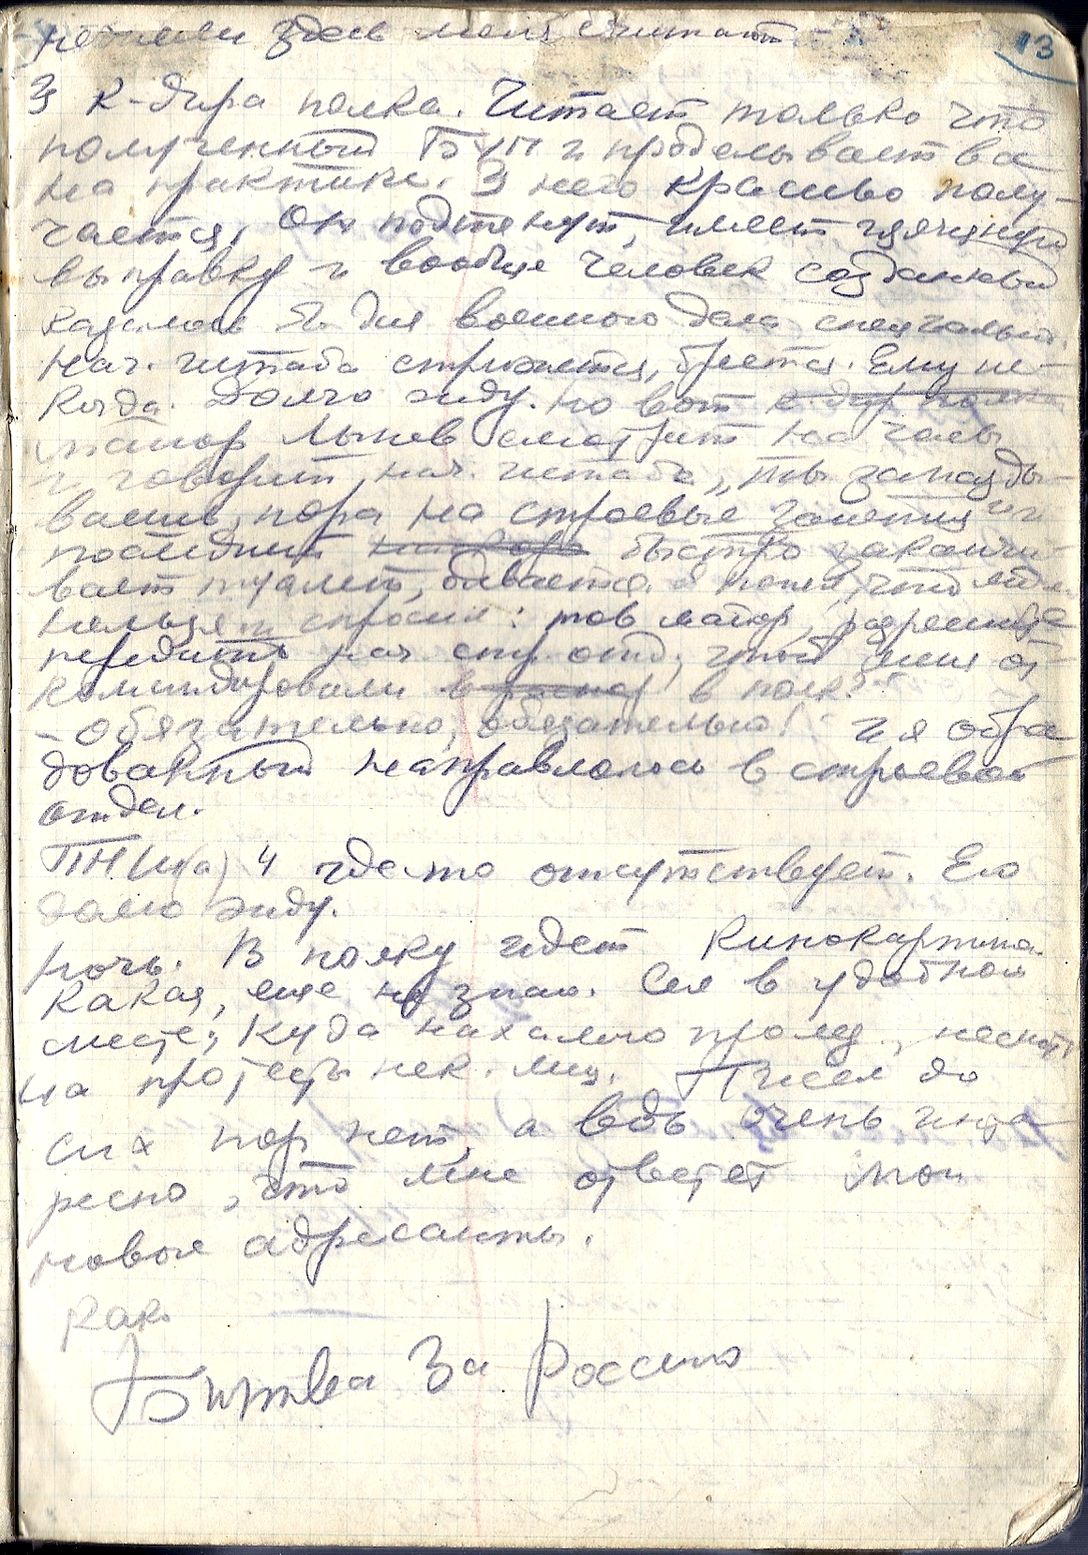 здесь меня считают.
13
У к-дира полка. Читает только что
полученный БУП и проделывает в а
на практике. У него красиво полу-
чается, Он подтянут, имеет изящную
выправку и вообще человек созданный
казалось бы для военного дела специально.
Нач. штаба стрижется, бреется. Ему не-
когда. Долго жду. Но вот к-дир полка
майор смотрит на часы
и говорит нач. штаба „ты запазды-
ваешь, пора на строевые занятия" и
последний быстро заканчи-
вает туалет, одевается. я понял, что
нельзя и спросил: тов майор, разрешите
передать нач стр. отд, чтоб меня от-
командировали в полк?
- Обязательно, обязательно! И я обра
дованный направляюсь в строевой
отдел.
ПНШ(а) 4 где то отсутствует. Его
долго жду.
Ночь. В полку идет кинокартина.
Какая, еще не знаю. Сел в удобном
месте, куда нахально пролез, несмот
на протесты нек. лиц. Писем до
сих пор нет, а ведь очень инте
ресно, что мне ответят мои
новые адресанты.
Как.
Битва За Россию